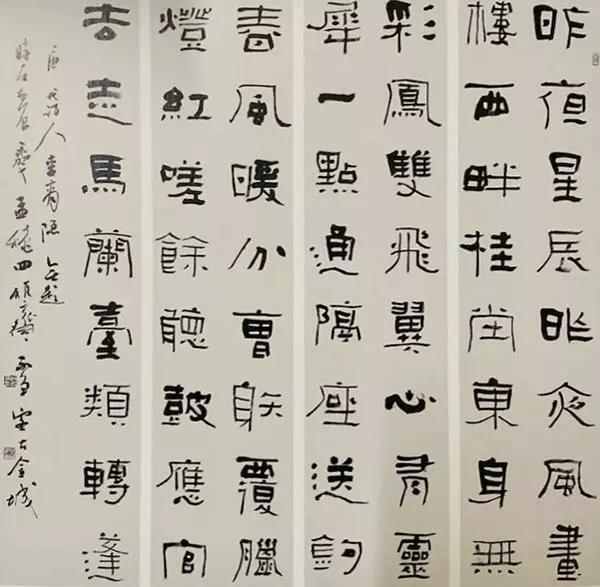 昨夜星辰昨夜風畫
樓西畔桂堂東身無
彩鳳雙飛翼心有靈
犀一點通隔座送鈎
春風暖分曹射覆臘
燈紅嗟餘聽鼓應官
去走馬蘭臺類轉蓬
唐代詩人李商隱無題
時在 辰 孟 四 古金城